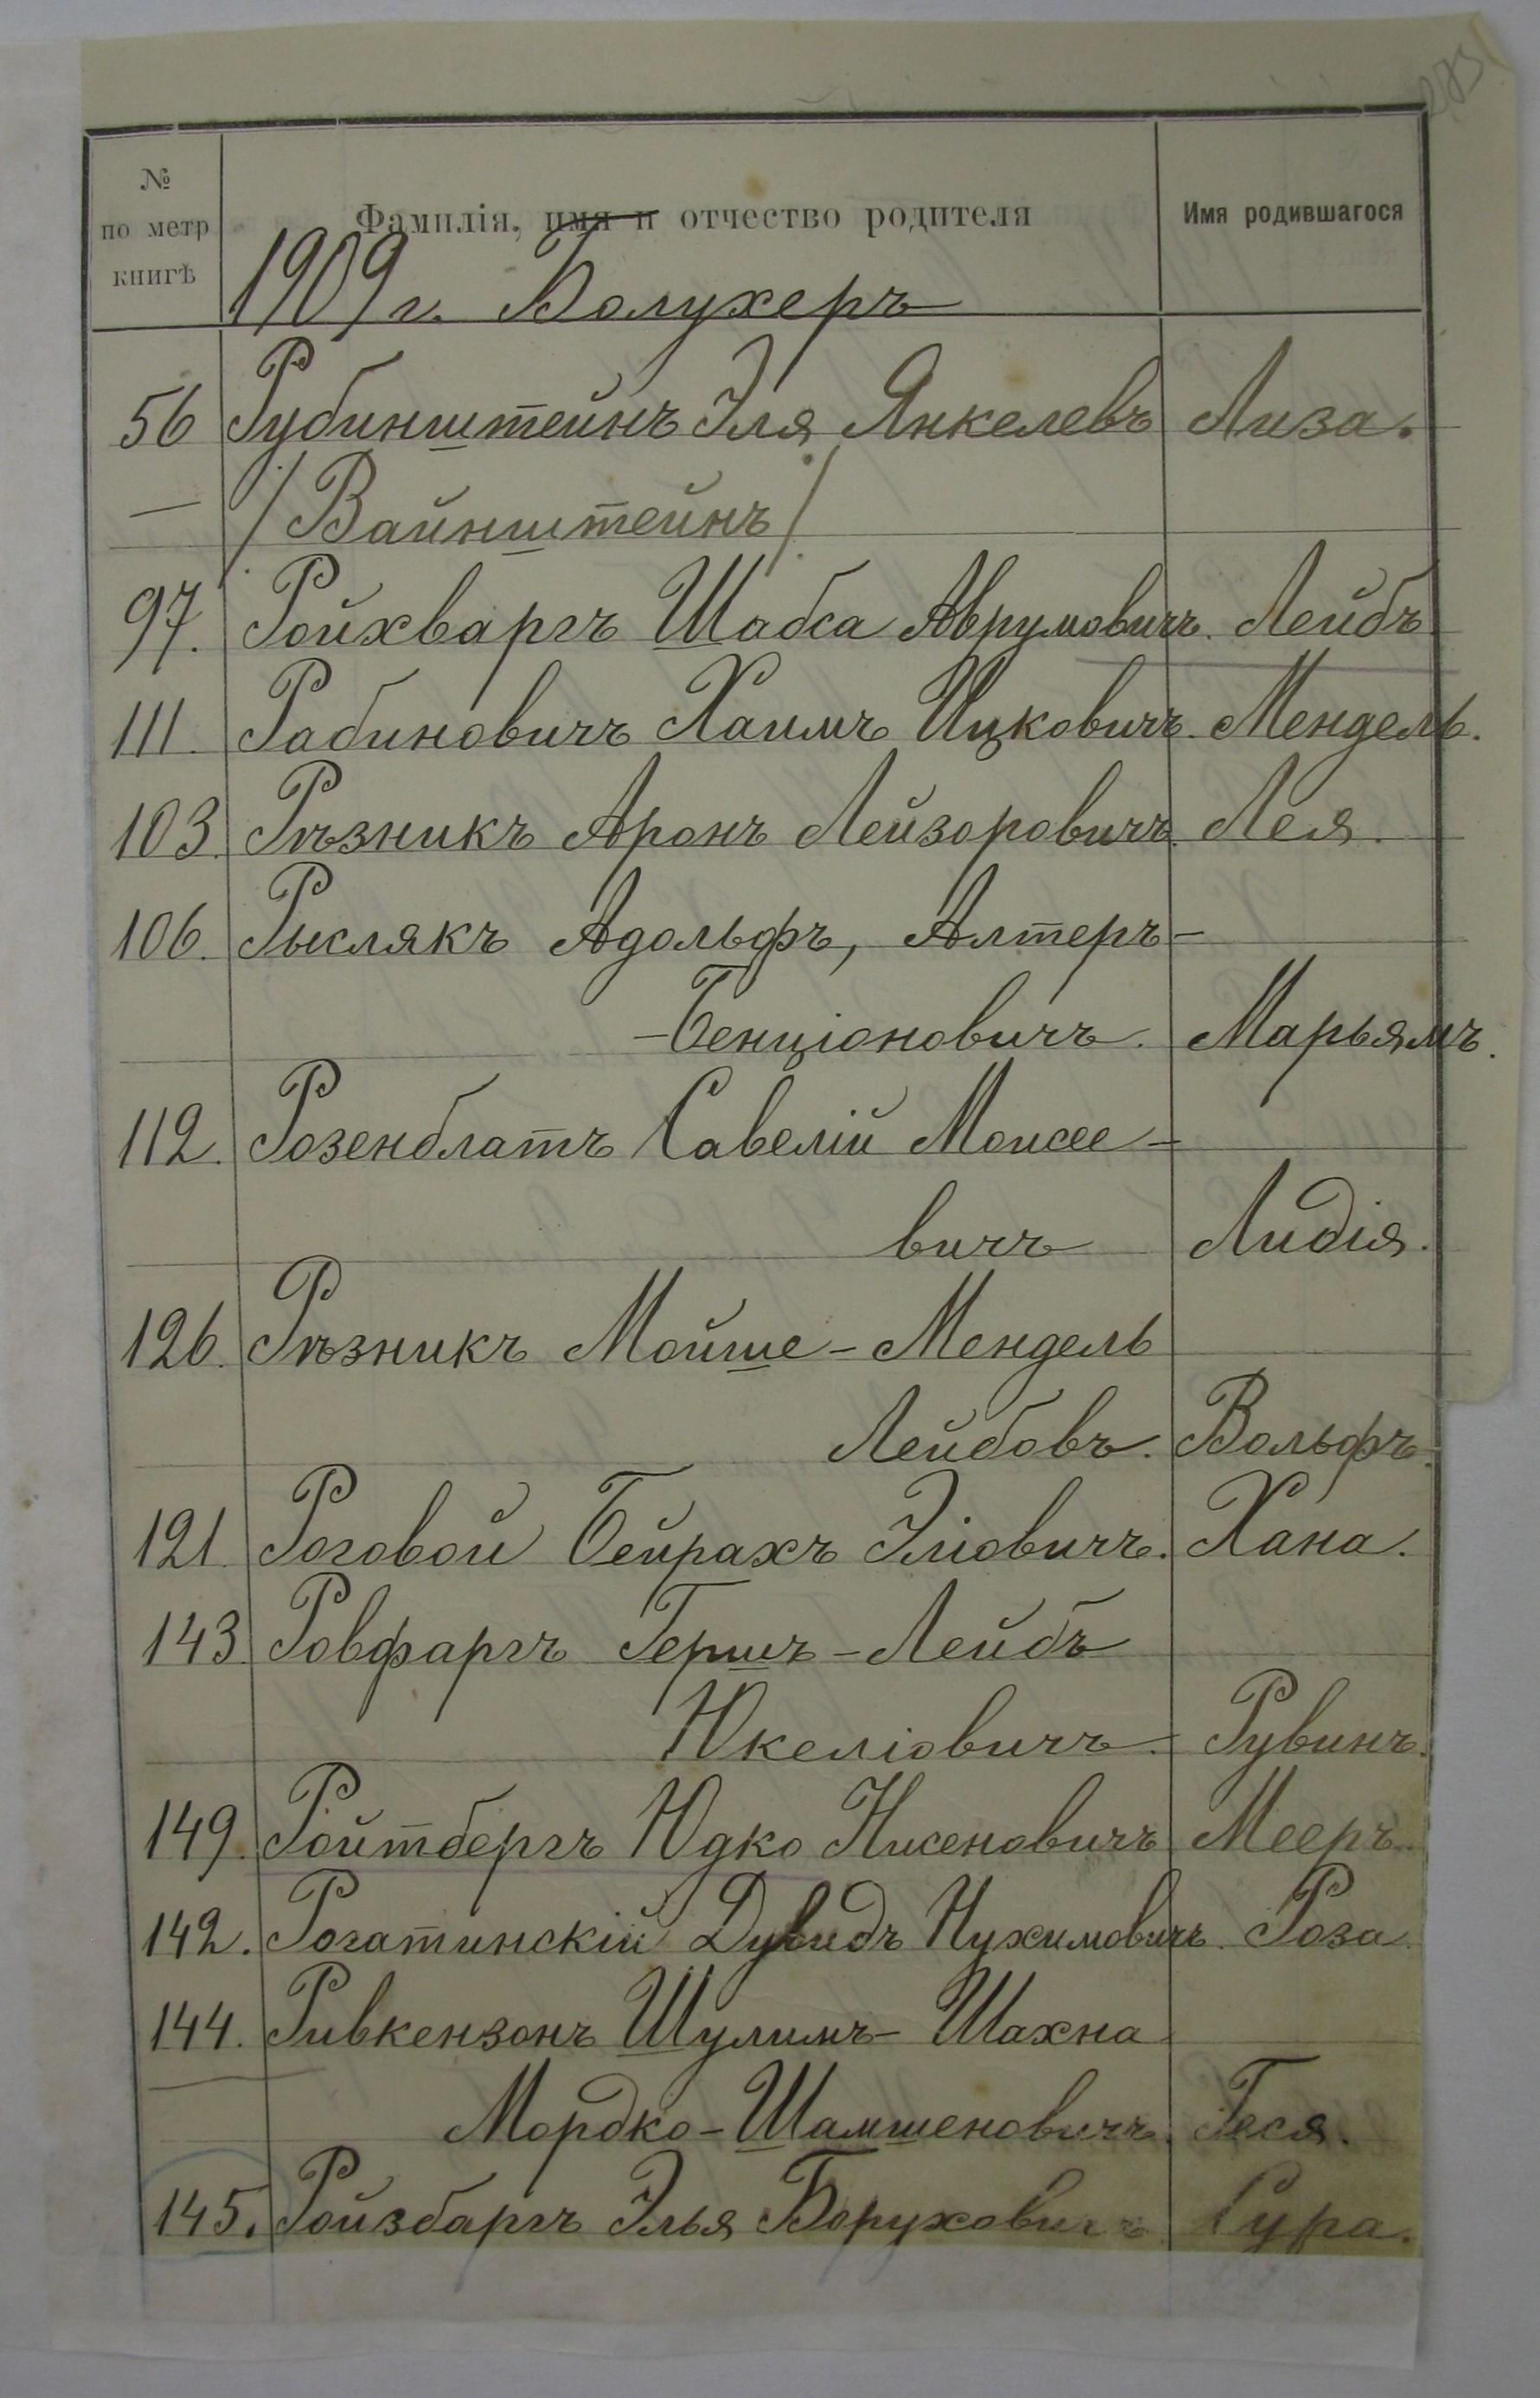 285
№ по метр книгѣ
Фамилія, имя и отчество родителя
Имя родившагося
1909 г. Болухеръ
56 Рубинштейнъ Эля Янкелевъ Лиза.
— /Вайнштейнъ/
97. Ройхваргъ Шабса Аврумовичъ. Лейбъ
111. Рабиновичъ Хаимъ Ицковичъ. Мендель.
103. Рѣзникъ Аронъ Лейзоровичъ. Лея.
106. Рыслякъ Адольфъ, Алтеръ-
-Бенціоновичъ. Марьямъ.
112. Розенблатъ Савелій Моисее-
вичъ Лидія.
126. Рѣзникъ Мойше-Мендель
Лейбовъ. Вольфъ.
121. Роговой Бейрахъ Эліовичъ. Хана.
143 Ровфаргъ Гершъ-Лейбъ
Юкеліовичъ. Рувинъ.
149. Ройтбергъ Юдко Нисеновичъ Мееръ.
142. Рогатинскій Дувидъ Нухимовичъ. Роза.
144. Ривкензонъ Шулимъ-Шахна
Мордко-Шамшеновичъ. Геся.
145. Ройзбаргъ Элья Боруховичъ Сура.